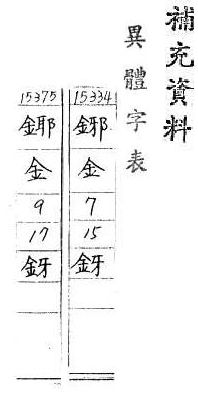 補充資料
異體字表
15334
鋣
金
7
15
釾
15375
鎁
金
9
17
釾